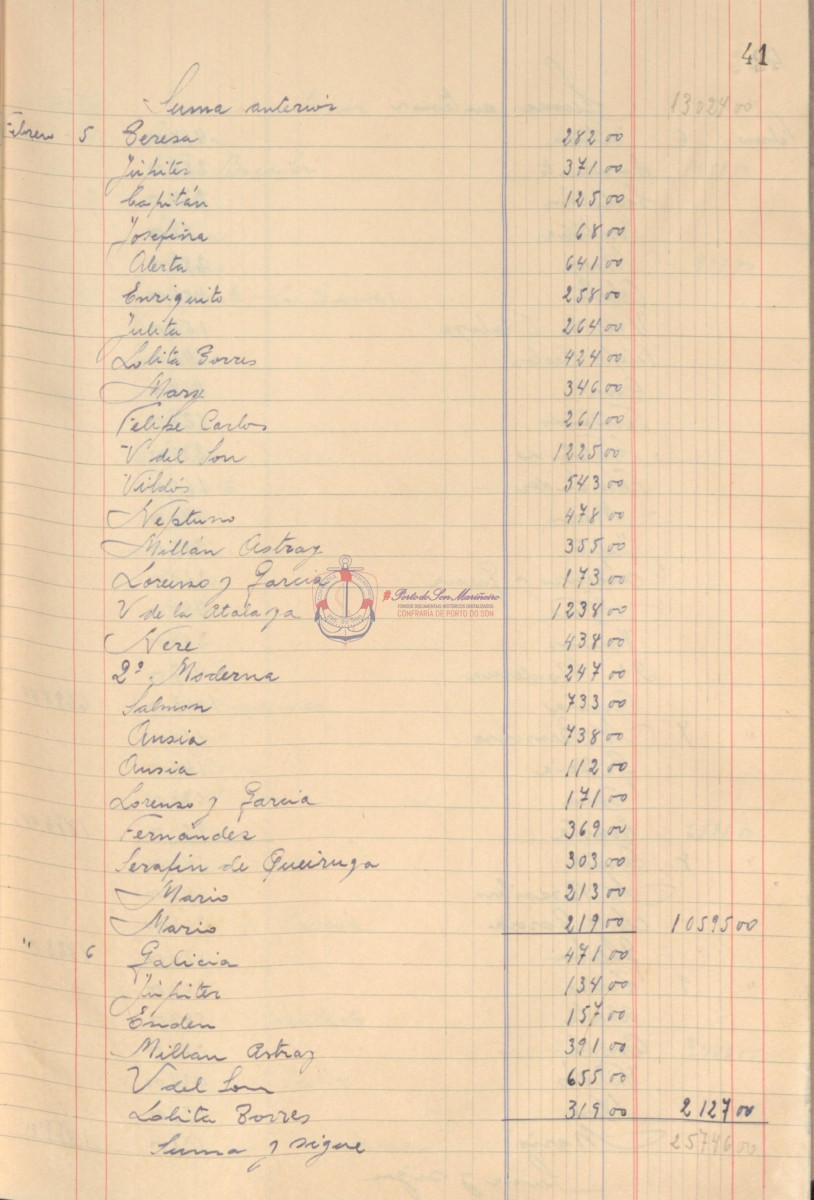 41
Suma anterior 13024 00
Febrero 5 Teresa 282 00
Júpiter 371 00
Capitán 125 00
Josefina 68 00
Alerta 641 00
Enriquito 258 00
Julita 264 00
Lolita Torres 424 00
Mary 346 00
Felipe Carlos 261 00
V del Son 1225 00
Vildós 543 00
Neptuno 478 00
Millán Astray 355 00
Lorenzo y Garcia 173 00
Porto do Son Mariñeiro
FONDOS DOCUMENTAIS HISTÓRICOS DIXITALIZADOS
CONFRARÍA DE PORTO DO SON
V de la Atalaya 1238 00
Nere 438 00
2ª Moderna 247 00
Salmon 733 00
Ansia 738 00
Ansia 112 00
Lorenzo y Garcia 171 00
Fernández 369 00
Serafin de Queiruga 303 00
Mario 213 00
Mario 219 00 10595 00
" 6 Galicia 471 00
Júpiter 134 00
Enden 157 00
Millan Astray 391 00
V del Son 655 00
Lolita Torres 319 00 2127 00
Suma y sigue 25746 00